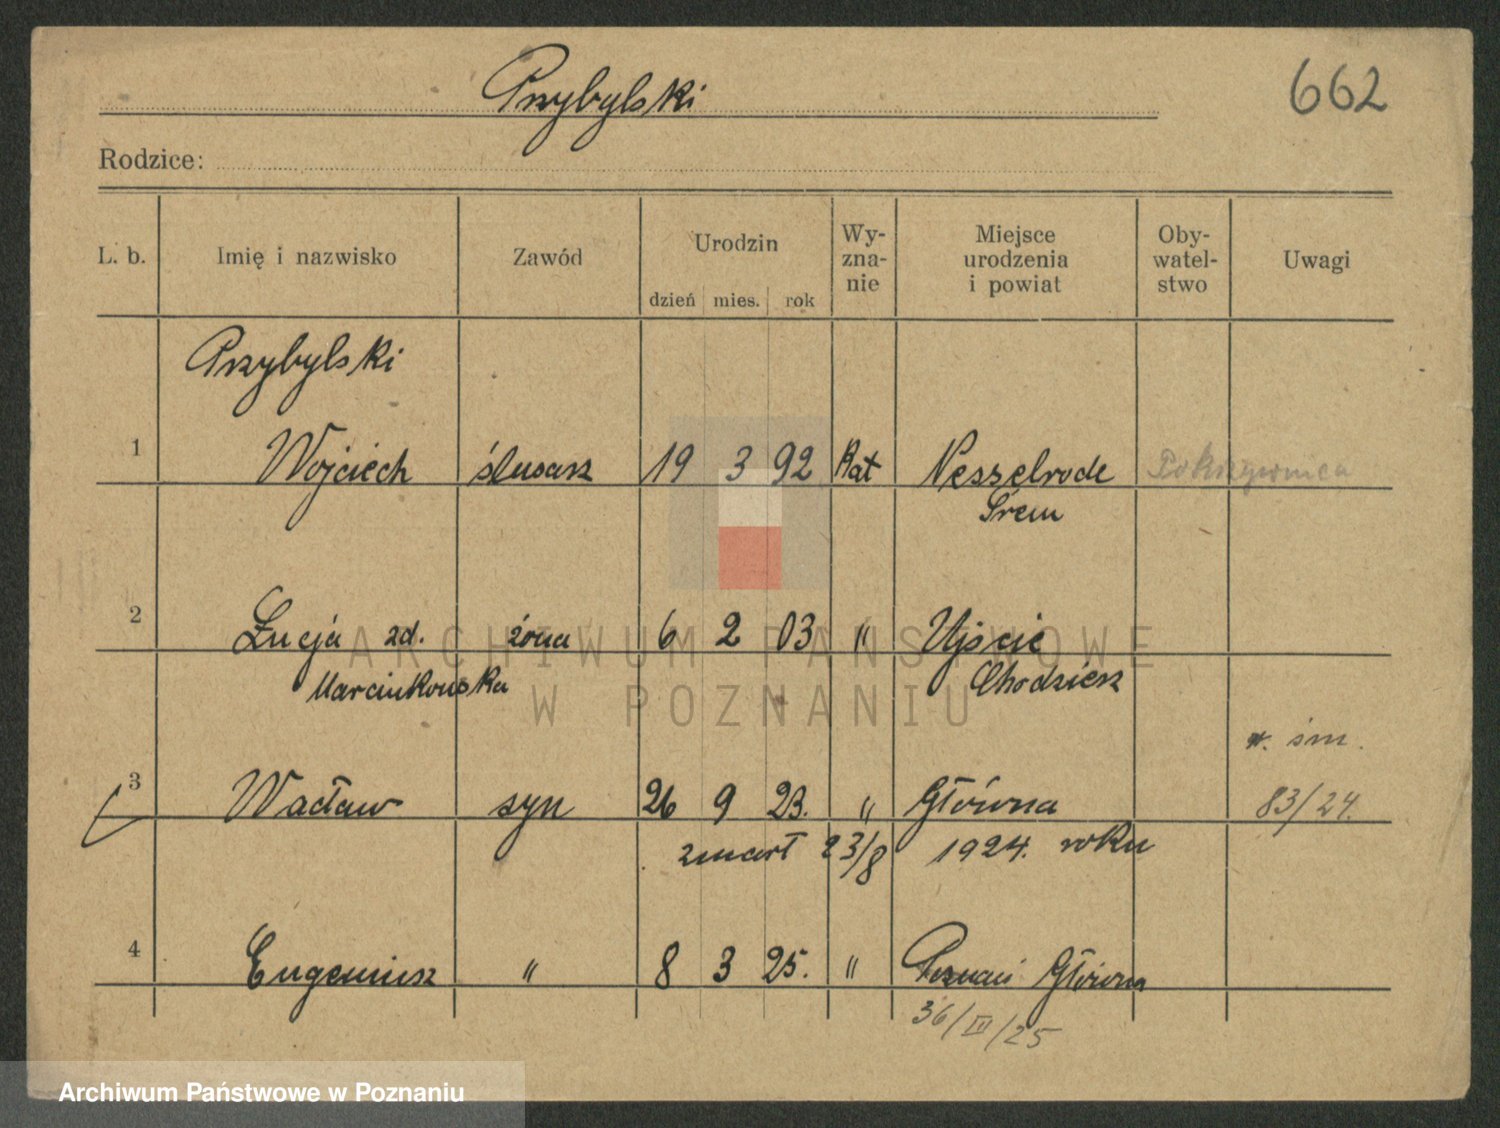 Przybylski
662
Rodzice:
L. b. Imię i nazwisko Zawód Urodzin dzień mies. rok Wy-zna-nie Miejsce urodzenia i powiat Oby-watel-stwo Uwagi
Przybylski
1 Wojciech ślusarz 19 3 92 Kat Nesselrode Pokrzywnica
Śrem
2 Łucja zd. żona 6 2 03 " Ujście
Marcinkowska Chodzież
ARCHIWUM PAŃSTWOWE
W POZNANIU
śm.
3 Wacław syn 26 9 23. " Główna 83/24.
zmarł 23/8 1924. roku
4 Eugeniusz " 8 3 25. " Poznań Główna
36/III/25
Archiwum Państwowe w Poznaniu